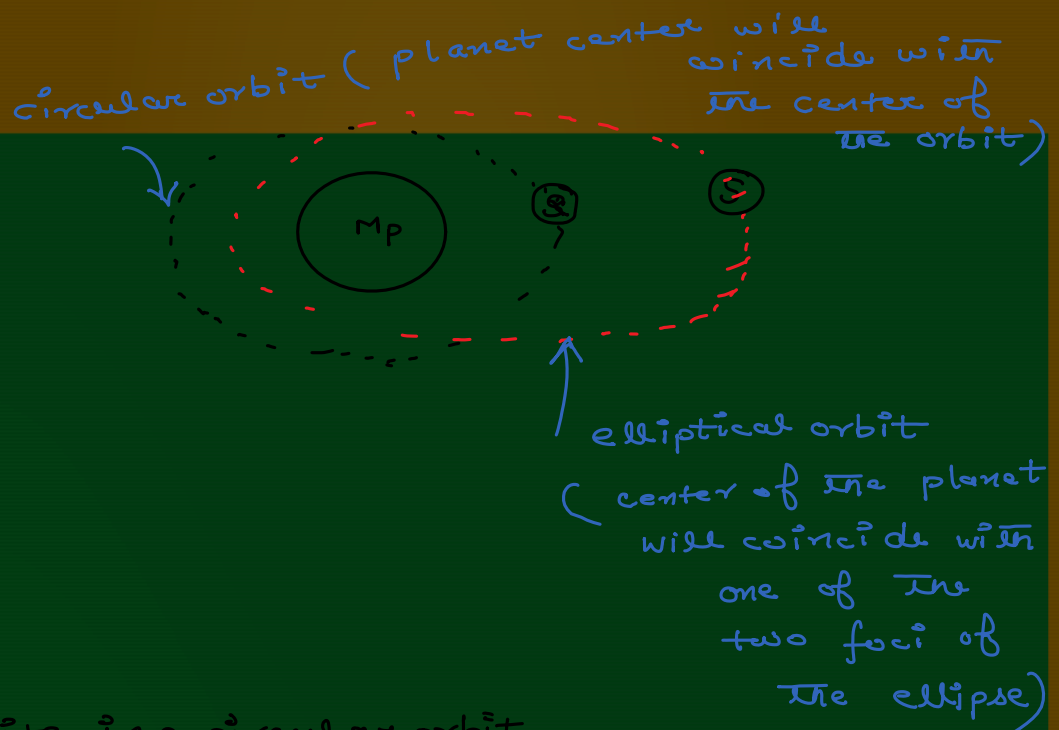 circular orbit ( planet center will
coincide with
the center of
the orbit)
Mp
S
S
elliptical orbit
( center of the planet
will coincide with
one of the
two foci of
the ellipse)
circular orbit